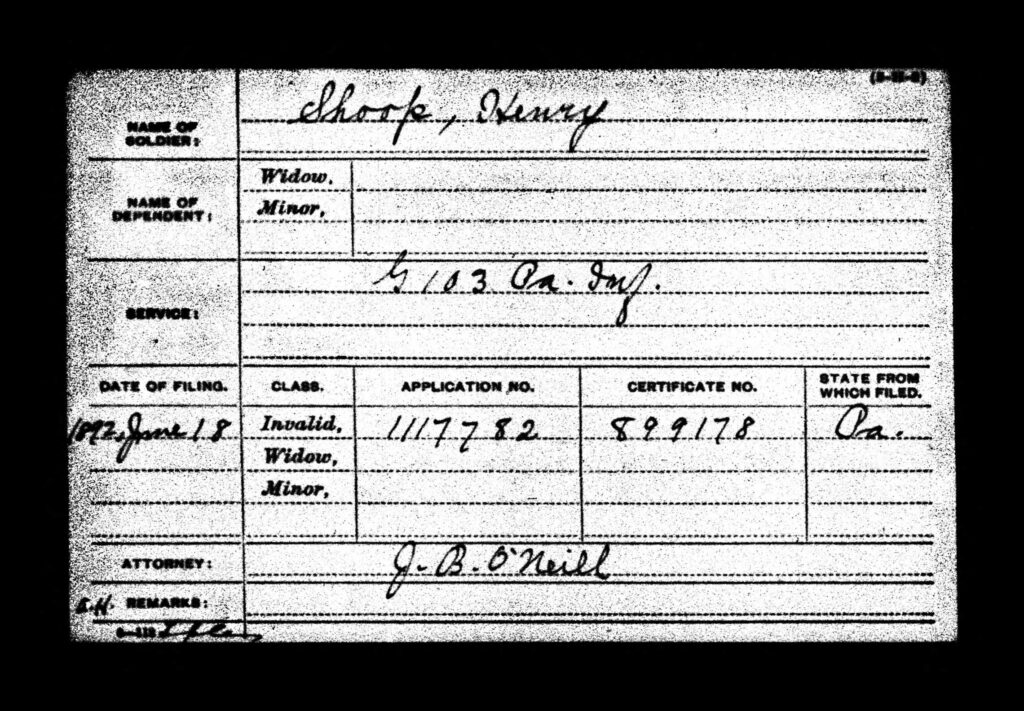 NAME OF
SOLDIER:
Shoop, Henry
NAME OF
DEPENDENT:
Widow,
Minor,
SERVICE:
G 103 Pa. Inf.
DATE OF FILING.
CLASS.
APPLICATION NO.
CERTIFICATE NO.
STATE FROM
WHICH FILED.
1892, June 18
Invalid,
1117782
899178
Pa.
Widow,
Minor,
ATTORNEY:
J. B. O'Neill
REMARKS: